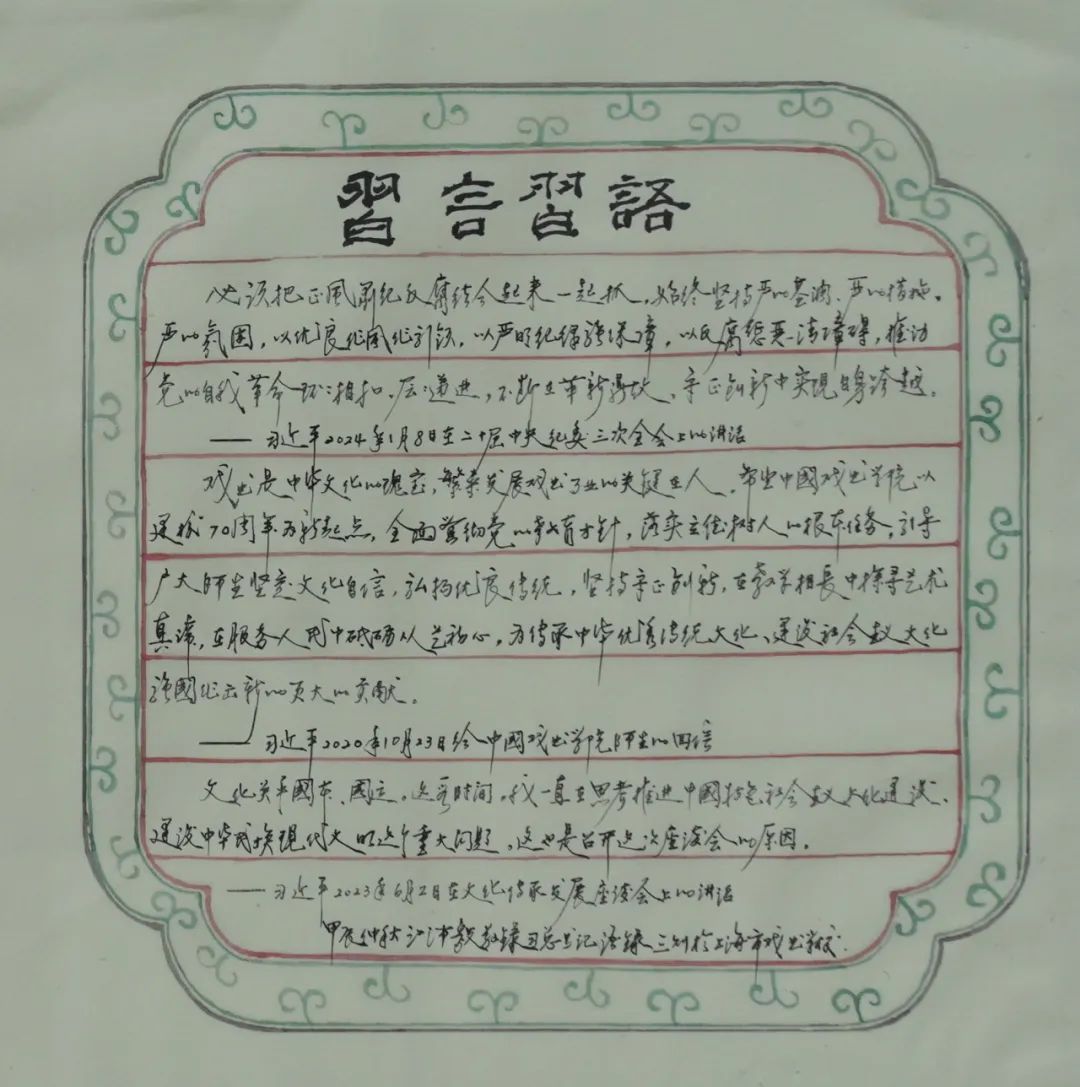 習言習語
必须把正风肃纪反腐结合起来一起抓，始终坚持严的基调、严的措施、
严的氛围，以优良作风作引领，以严明纪律强保障，以反腐惩恶清障碍，推动
党的自我革命环环相扣、层层递进，不断在革新易故、守正创新中实现自身跨越。
——习近平2024年1月8日在二十届中央纪委三次全会上的讲话
戏曲是中华文化的瑰宝，繁荣发展戏曲事业的关键在人。希望中國戏曲学院以
建校70周年为新起点，全面贯彻党的教育方针，落实立德树人的根本任务，引导
广大师生坚定文化自信，弘扬优良传统，坚持守正创新，在教学相長中探寻艺术
真谛，在服务人民中砥砺从艺初心，为传承中华优秀传统文化、建设社会主义文化
强國作出新的更大的贡献。
——习近平2020年10月23日给中國戏曲学院师生的回信
文化关乎國本、國运。这段时间，我一直在思考推进中國特色社会主义文化建设、
建设中华民族現代文明这个重大问题，这也是召开这次座谈会的原因。
——习近平2023年6月2日在文化传承发展座谈会上的讲话
甲辰仲秋 敬录习总书记语录三则於上海市戏曲学校